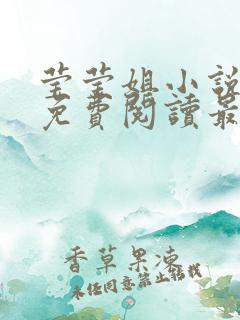 莹莹姐小說
免費閱讀最
香草果凍
未经同意禁止转载